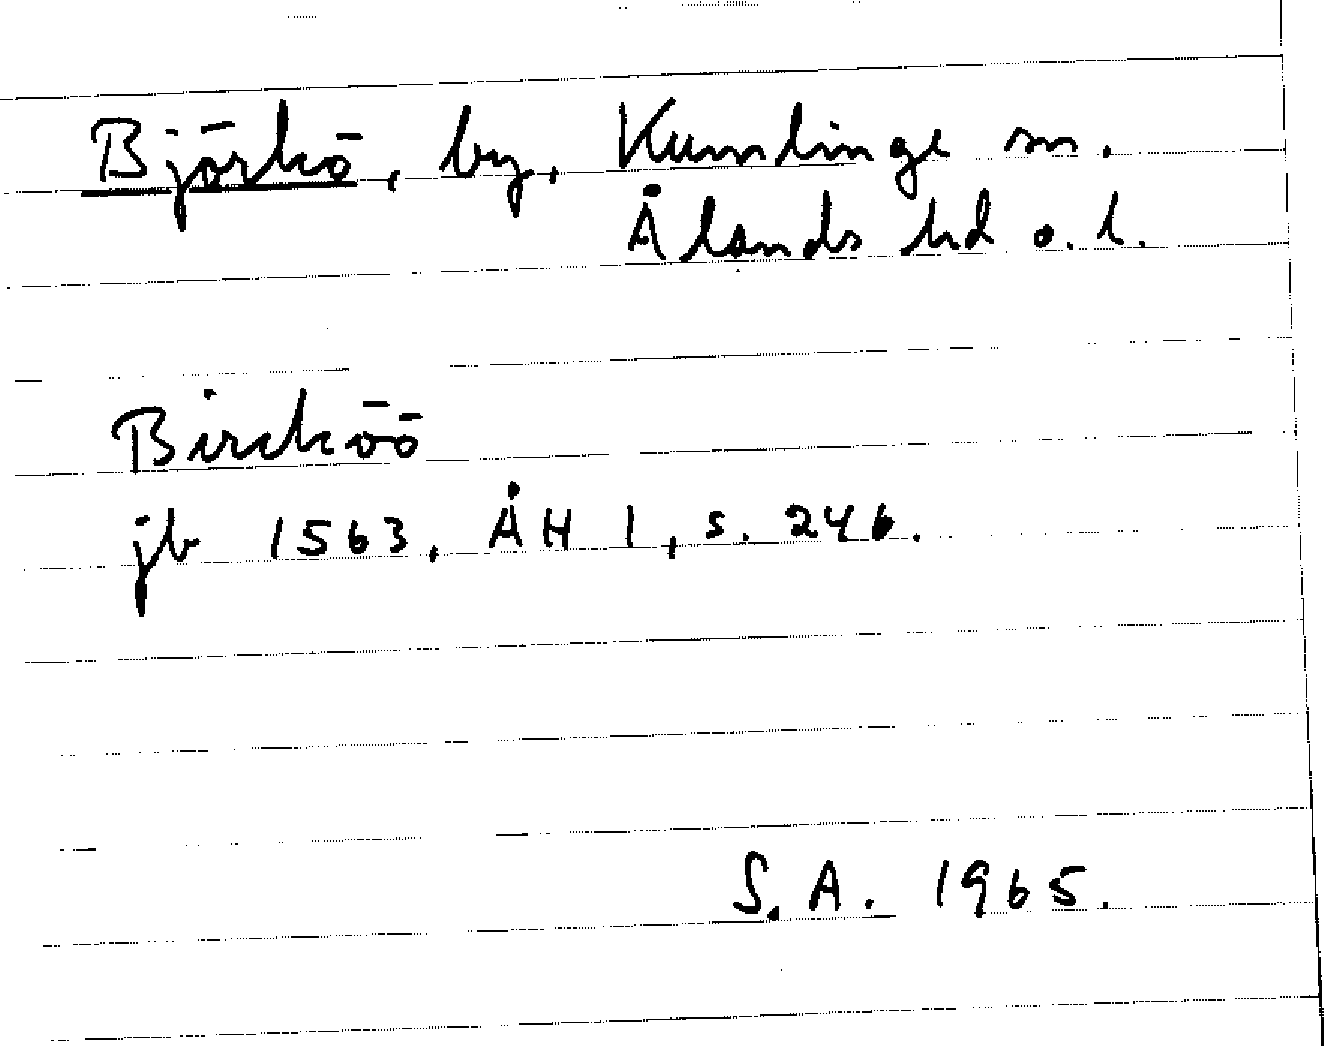 Björkö, by, Kumlinge sn.
Ålands hd o. l.
Bircköö
jb 1563, ÅH 1, s. 246.
S.A. 1965.